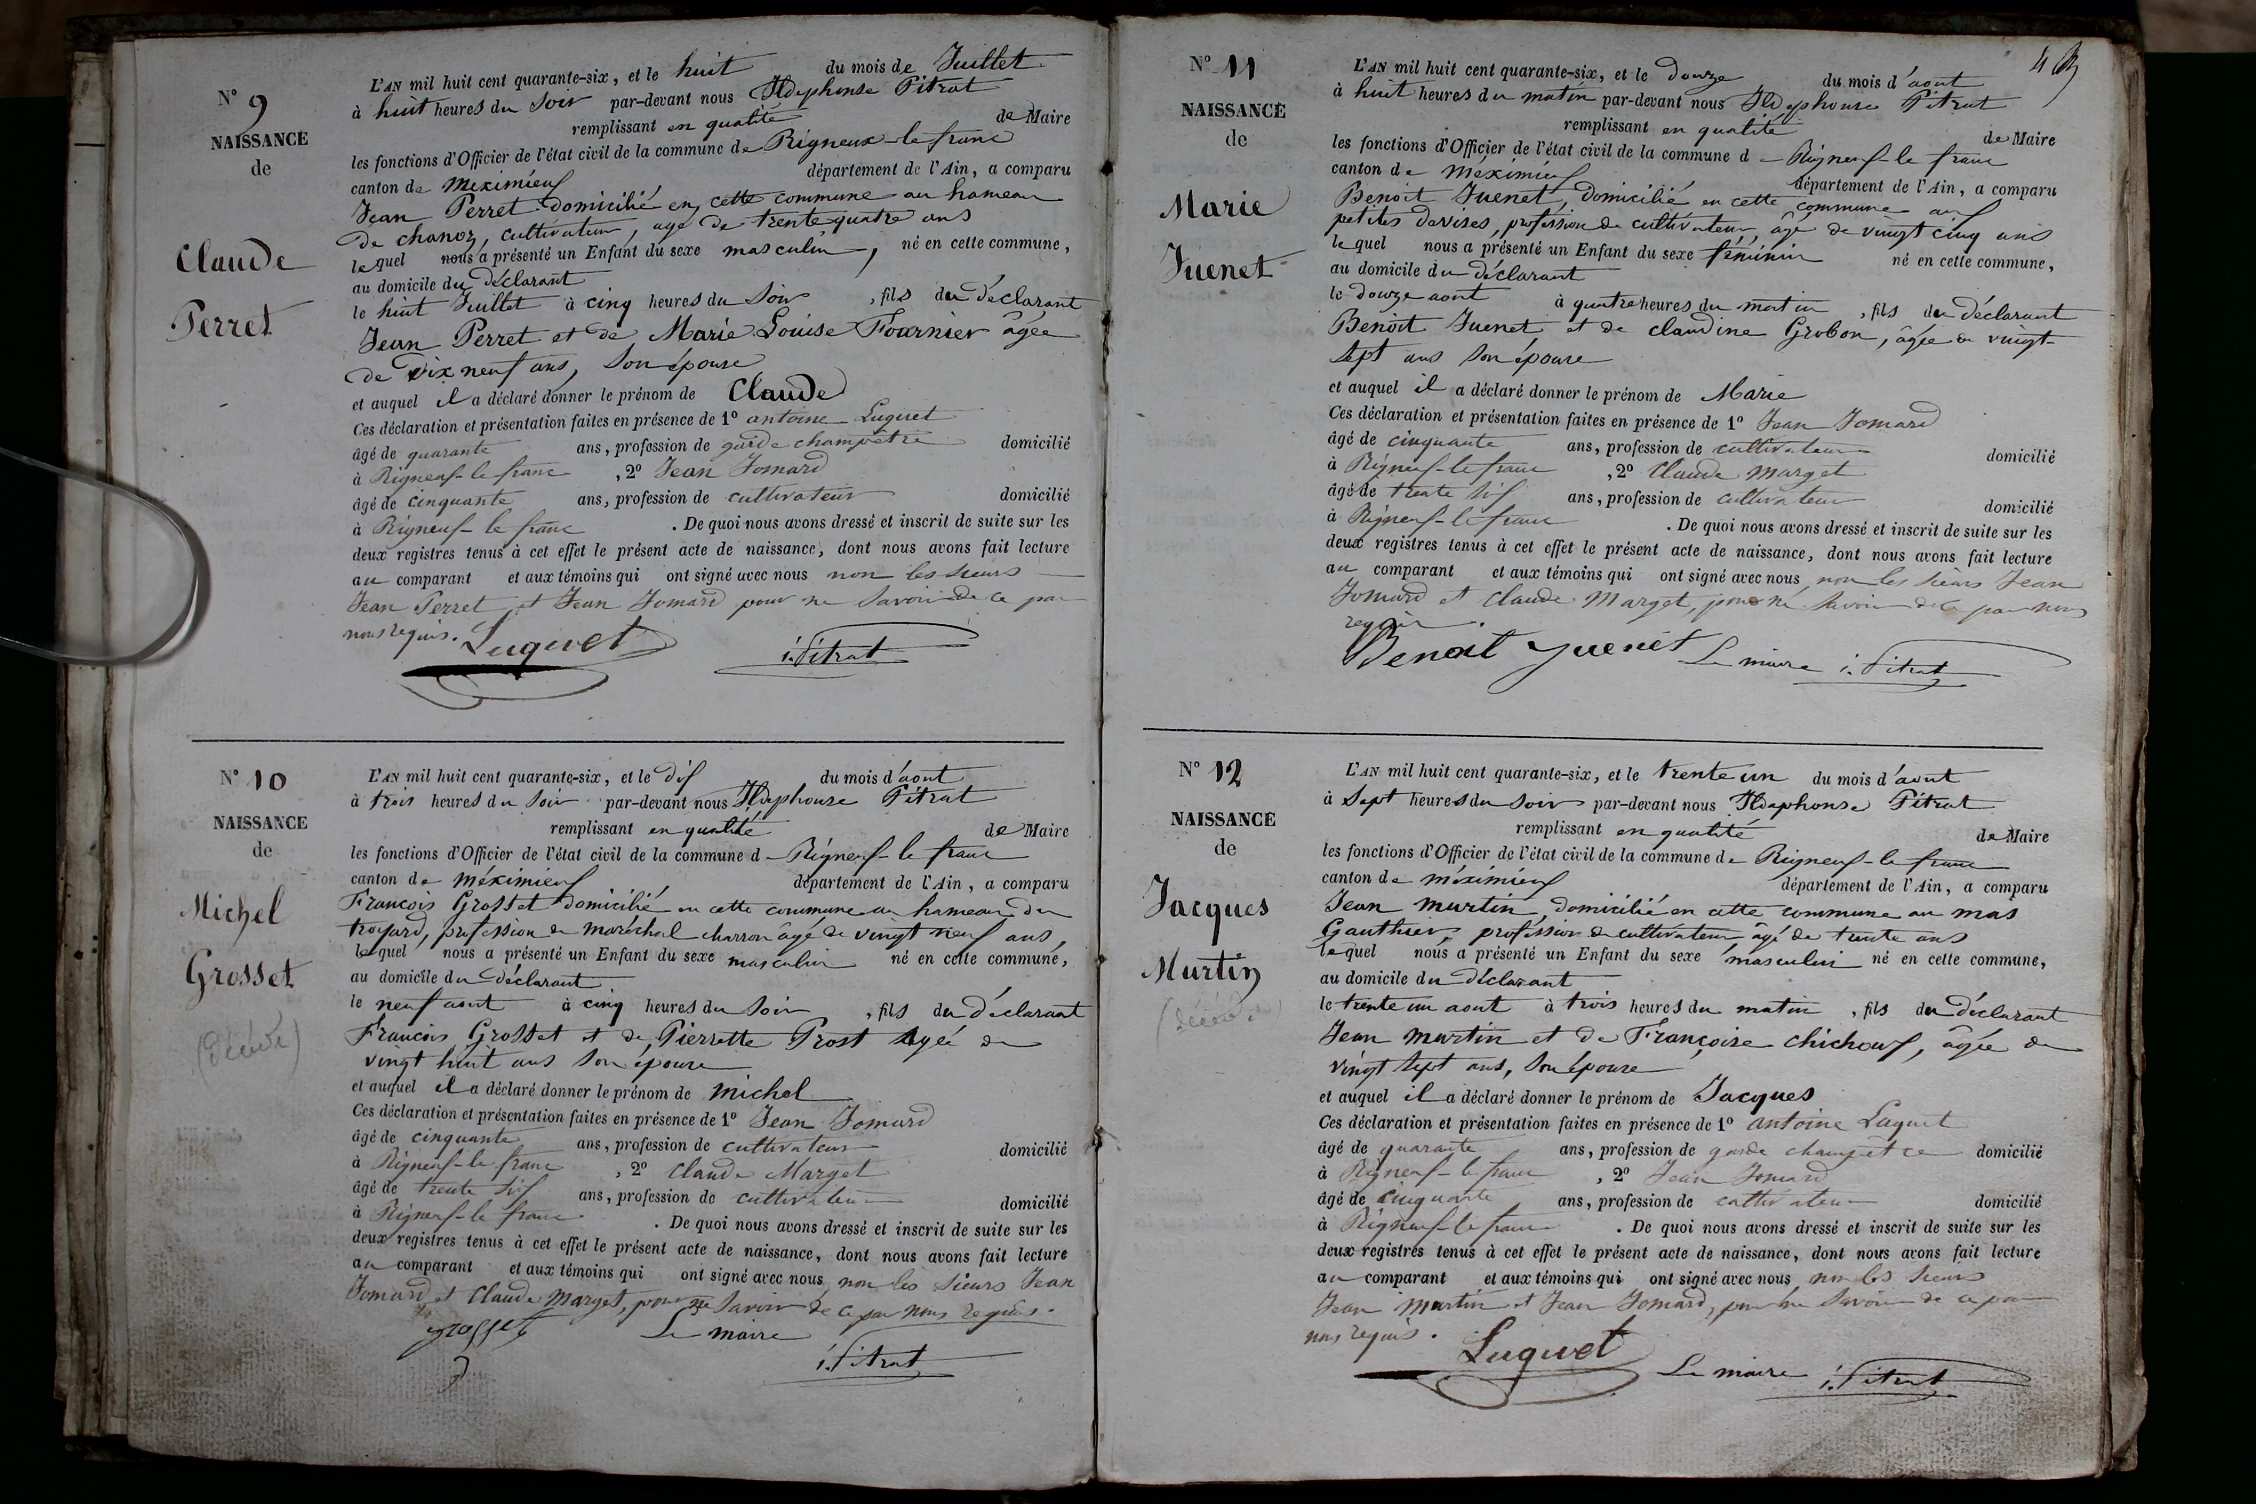 N° 9
NAISSANCE
de
Claude
Perret
L'AN mil huit cent quarante-six, et le huit du mois de Juillet
à huit heures du soir par-devant nous Ildephonse Pitrat
remplissant en qualité de Maire
les fonctions d'Officier de l'état civil de la commune de Rigneux-le-franc
canton de Meximieux département de l'Ain, a comparu
Jean Perret domicilié en cette commune au hameau
de chanoz, cultivateur, agé de trente quatre ans
lequel nous a présenté un Enfant du sexe masculin, né en cette commune,
au domicile du déclarant
le huit Juillet à cinq heures du soir, fils du déclarant
Jean Perret et de Marie Louise Fournier âgée
de dix neuf ans, son épouse
et auquel il a déclaré donner le prénom de Claude
Ces déclaration et présentation faites en présence de 1° antoine Luquet
âgé de quarante ans, profession de garde champêtre domicilié
à Rigneux-le franc, 2° Jean Jomard
âgé de cinquante ans, profession de cultivateur domicilié
à Rigneux-le franc. De quoi nous avons dressé et inscrit de suite sur les
deux registres tenus à cet effet le présent acte de naissance, dont nous avons fait lecture
au comparant et aux témoins qui ont signé avec nous non les sieurs
Jean Perret et Jean Jomard pour ne savoir de ce par
nous requis. Luquet i. Pitrat
N° 10
NAISSANCE
de
Michel
Grosset
(décédé)
L'AN mil huit cent quarante-six, et le dix du mois d'aout
à trois heures du soir par-devant nous Ildephonse Pitrat
remplissant en qualité de Maire
les fonctions d'Officier de l'état civil de la commune d Rigneux-le franc
canton de méximieux département de l'Ain, a comparu
François Grosset domicilié en cette commune au hameau du
troyard, profession de maréchal charron âgé de vingt neuf ans,
lequel nous a présenté un Enfant du sexe masculin né en cette commune,
au domicile du déclarant
le neuf aout à cinq heures du soir, fils du déclarant
François Grosset et de Pierrette Prost agée de
vingt huit ans son épouse
et auquel il a déclaré donner le prénom de michel
Ces déclaration et présentation faites en présence de 1° Jean Jomard
âgé de cinquante ans, profession de cultivateur domicilié
à Rigneux-le franc, 2° Claude Marget
âgé de trente six ans, profession de cultivateur domicilié
à Rigneux-le franc. De quoi nous avons dressé et inscrit de suite sur les
deux registres tenus à cet effet le présent acte de naissance, dont nous avons fait lecture
au comparant et aux témoins qui ont signé avec nous non les sieurs Jean
Jomard et Claude Marget, pour ne savoir de ce par nous requis.
grosset Le maire
i. Pitrat
N° 11
NAISSANCE
de
Marie
Juenet
L'AN mil huit cent quarante-six, et le douze du mois d'aout
à huit heures du matin par-devant nous Ildephonse Pitrat
remplissant en qualité de Maire
les fonctions d'Officier de l'état civil de la commune d Rigneux-le franc
canton de méximieux département de l'Ain, a comparu
Benoit Juenet, domicilié en cette commune aux
petites devises, profession de cultivateur, âgé de vingt cinq ans
lequel nous a présenté un Enfant du sexe féminin né en cette commune,
au domicile du déclarant
le douze aout à quatre heures du matin, fils du déclarant
Benoit Juenet et de claudine Grobon, âgée de vingt
sept ans son épouse
et auquel il a déclaré donner le prénom de Marie
Ces déclaration et présentation faites en présence de 1° Jean Jomard
âgé de cinquante ans, profession de cultivateur domicilié
à Rigneux-le franc, 2° Claude Marget
âgé de trente six ans, profession de cultivateur domicilié
à Rigneux-le franc. De quoi nous avons dressé et inscrit de suite sur les
deux registres tenus à cet effet le présent acte de naissance, dont nous avons fait lecture
au comparant et aux témoins qui ont signé avec nous non les sieurs Jean
Jomard et Claude Marget, pour ne savoir de ce par nous
requis.
Benoit Juenet Le maire i. Pitrat
N° 12
NAISSANCE
de
Jacques
Martin
(décédé)
L'AN mil huit cent quarante-six, et le trente un du mois d'aout
à sept heures du soir par-devant nous Ildephonse Pitrat
remplissant en qualité de Maire
les fonctions d'Officier de l'état civil de la commune de Rigneux-le franc
canton de méximieux département de l'Ain, a comparu
Jean martin, domicilié en cette commune au mas
Gauthier, profession de cultivateur âgé de trente ans
lequel nous a présenté un Enfant du sexe masculin né en cette commune,
au domicile du déclarant
le trente un aout à trois heures du matin, fils du déclarant
Jean martin et de Françoise chichoux, âgée de
vingt sept ans, son épouse
et auquel il a déclaré donner le prénom de Jacques
Ces déclaration et présentation faites en présence de 1° antoine Luquet
âgé de quarante ans, profession de garde champêtre domicilié
à Rigneux-le franc, 2° Jean Jomard
âgé de cinquante ans, profession de cultivateur domicilié
à Rigneux-le franc. De quoi nous avons dressé et inscrit de suite sur les
deux registres tenus à cet effet le présent acte de naissance, dont nous avons fait lecture
au comparant et aux témoins qui ont signé avec nous non les sieurs
Jean martin et Jean Jomard, pour ne savoir de ce par
nous requis.
Luquet Le maire i. Pitrat